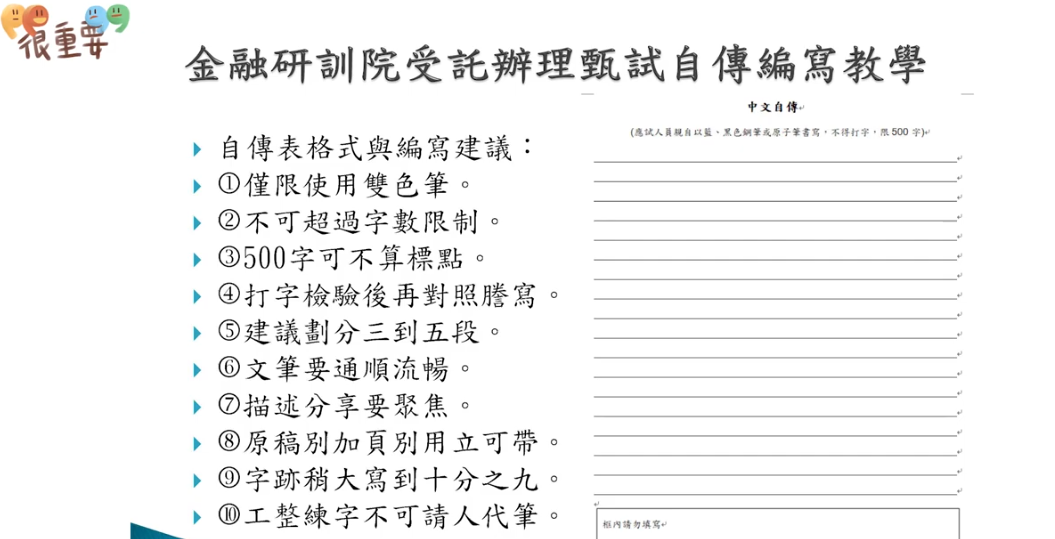 很重要
金融研訓院受託辦理甄試自傳編寫教學
自傳表格式與編寫建議：
①僅限使用雙色筆。
②不可超過字數限制。
③500字可不算標點。
④打字檢驗後再對照謄寫。
⑤建議劃分三到五段。
⑥文筆要通順流暢。
⑦描述分享要聚焦。
⑧原稿別加頁別用立可帶。
⑨字跡稍大寫到十分之九。
⑩工整練字不可請人代筆。
中文自傳
(應試人員親自以藍、黑色鋼筆或原子筆書寫，不得打字，限 500 字)
框內請勿填寫